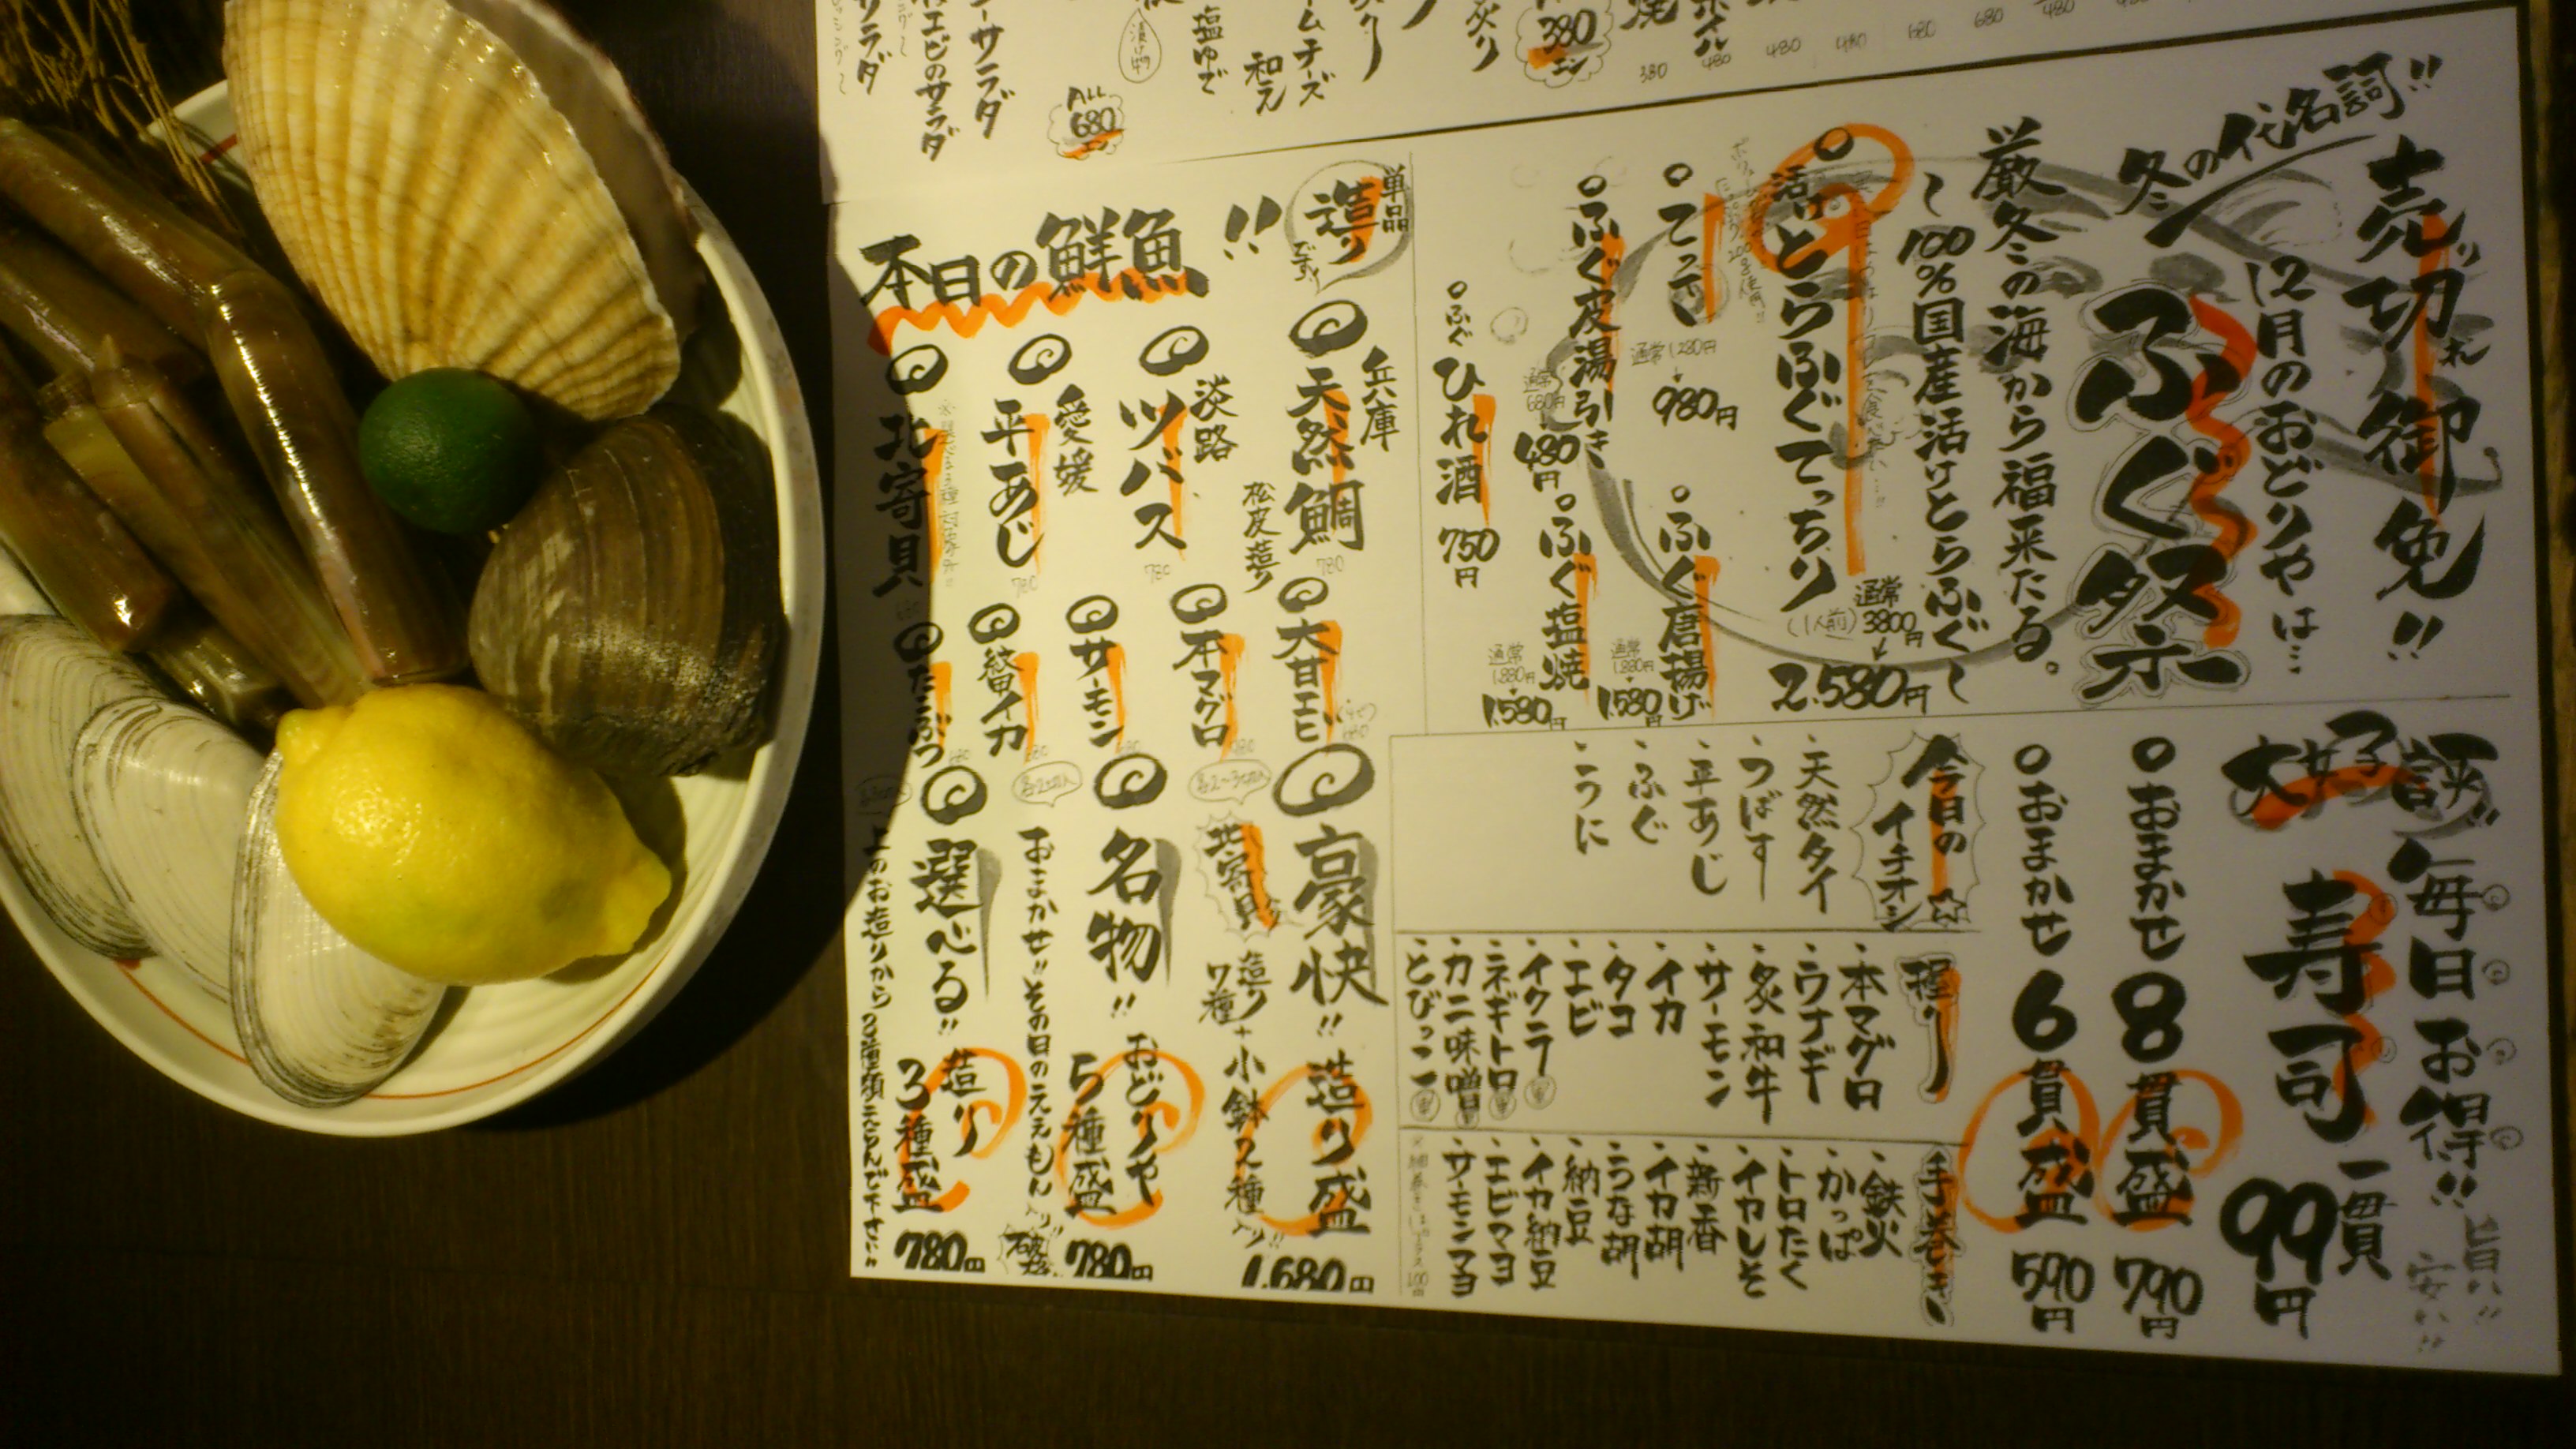 サラダ
エビのサラダ
ーサラダ
ALL
680
漬け物
塩ゆで
ームチーズ
和え
炙り
380
焼
380
480
480
480
680
680
480
売り切れ御免!!
冬の代名詞!!
12月のおどりやは…
ふぐ祭
厳冬の海から福来たる。
〜100%国産活けとらふぐ〜
活けとらふぐてっちり
(1人前)
通常
3800円
↓
2.580円
てっさ
通常1.280円
↓
980円
ふぐ唐揚げ
通常
1.880円
↓
1.580円
ふぐ皮湯引き
通常
680円
↓
480円
ふぐ塩焼
通常
1.880円
↓
1.580円
ふぐ
ひれ酒
750円
本日の鮮魚!!
単品
造り
です!
兵庫
天然鯛
松皮造り
780
淡路
ツバス
780
愛媛
平あじ
780
北寄貝
680
大甘エビ
680
本マグロ
サーモン
イカ
たこぶつ
豪快!!
北寄貝
造り7種+小鉢2種入り!!
造り盛
1.680円
名物!!
おまかせ!!その日のええもん入り!!
おどりや
5種盛
780円
選べる!!
上のお造りから3種類えらんで下さい!!
造り
3種盛
780円
大好評!!
毎日お得!!
旨い!!
安い!!
寿司
一貫
99円
おまかせ8貫盛
790円
おまかせ6貫盛
590円
今日の
イチオシ☆
・天然タイ
・つばす
・平あじ
・ふぐ
・うに
握り
・本マグロ
・ウナギ
・炙り和牛
・サーモン
・イカ
・タコ
・エビ
・イクラ
・ネギトロ
・カニ味噌
・とびっこ
手巻き
・鉄火
・かっぱ
・トロたく
・イカしそ
・新香
・イカ胡
・うな胡
・納豆
・イカ納豆
・エビマヨ
・サーモンマヨ
※細巻きはプラス100円